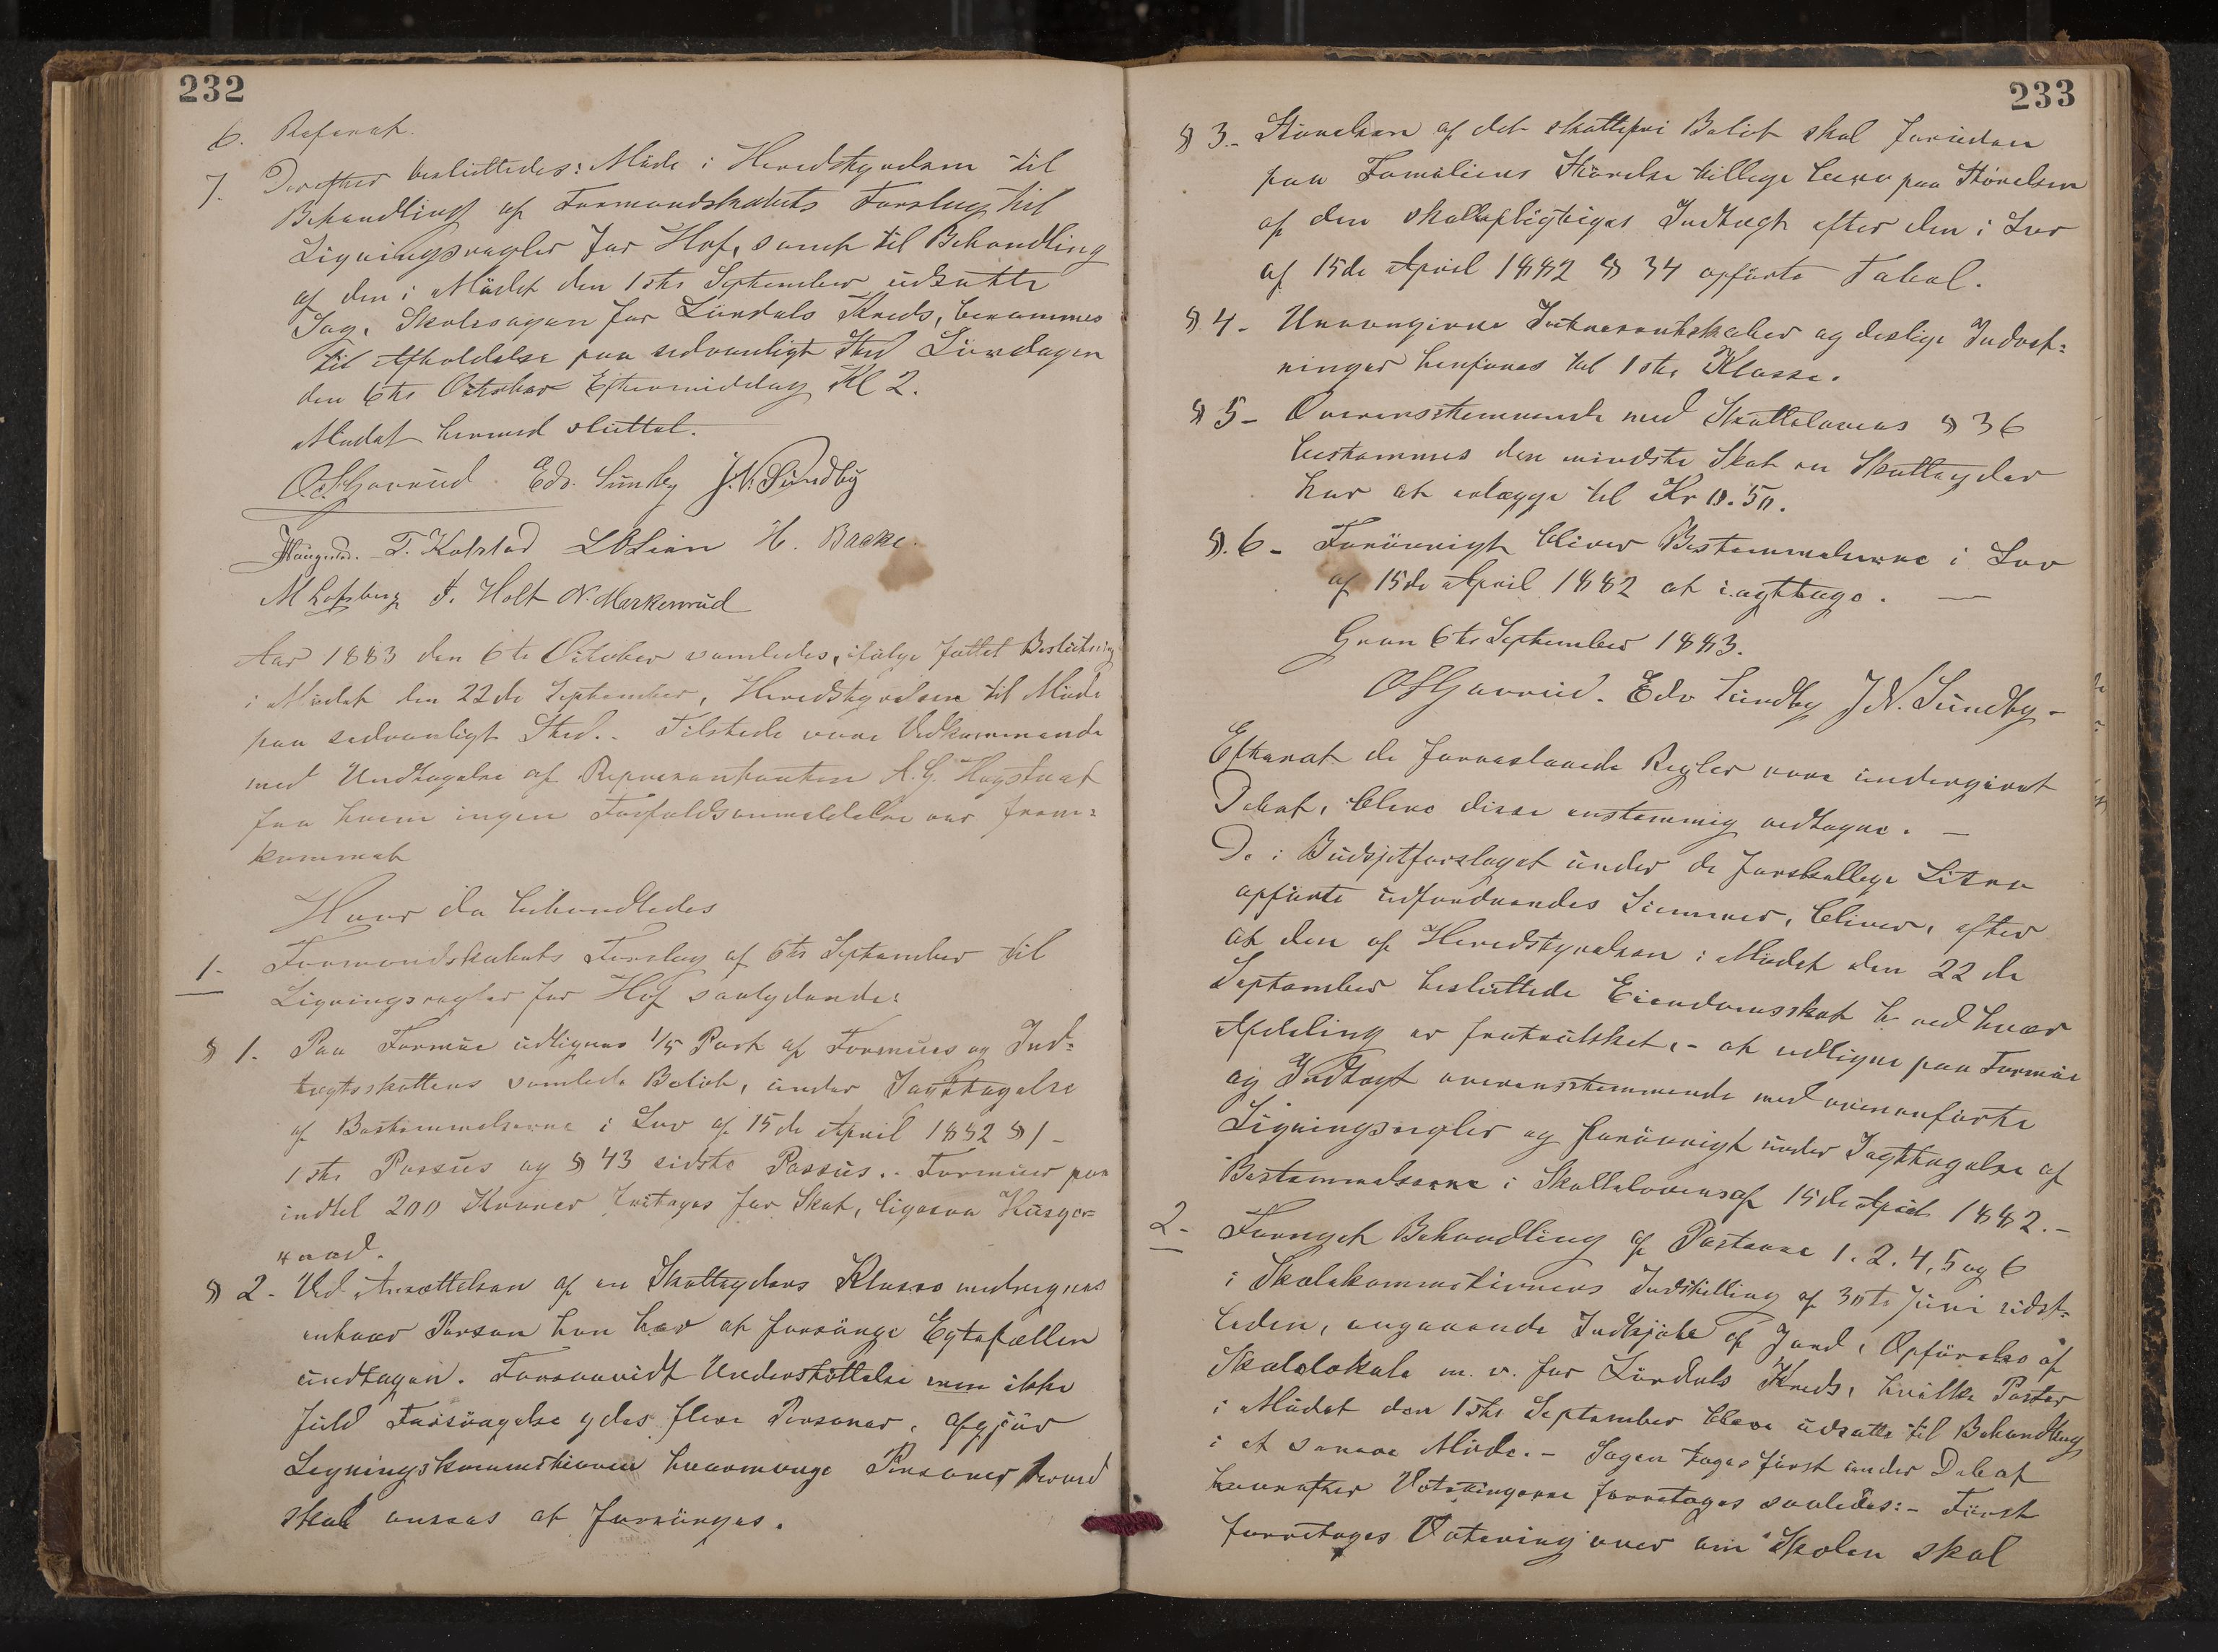 232
6. Referat.
7. Derefter besluttedes: Møde i Heredstyrelsen til
Behandling af Formandskabets Forslag til
Ligningsregler for Hof, samt til Behandling
af den i Mødet den 1ste September udsatte
Sag, Skolesagen for Lündals Kreds, berammes
til Afholdelse paa sedvanligt Sted Lørdagen
den 6te October Eftermiddag Kl 2.
Mødet hermed sluttet.
Edv. Sundby J. N. Sundby
T. Kolstad L O Lien H. Bakke.
M Lofsberg J. Holt N. Markerud
Aar 1883 den 6te October samledes, ifølge fattet Beslutning
i Mødet den 22de September, Heredstyrelsen til Møde
paa sedvanligt Sted. - Tilstede vare Vedkommende
med Undtagelse af Repræsentanten A. G. Hagstuet
fra hvem ingen Forfaldsanmeldelse var frem=
kommet
Hvor da behandledes
1. Formandskabets Forslag af 6te September til
Ligningsregler for Hof saalydende:
§ 1. Paa Formue udlignes 1/5 Part af Formues og Ind=
tægtsskattens samlede Beløb, under Iagttagelse
af Bestemmelserne i Lov af 15de April 1882 § 1 -
1ste Passus og § 43 sidste Passus. - Formuer paa
indtil 200 Kroner fritages for Skat, ligesaa Husge=
raad.
§ 2. Ved Ansættelsen af en Skatteyders Klasse medregnes
enhver Person han har at forsørge Egtefællen
undtagen. Forsaavidt Understøttelse men ikke
fuld Forsørgelse ydes flere Personer, afgjør
Ligningskommissionen hvormange Personer hermed
skal ansees at forsørges.
233
§ 3. - Størrelsen af det skattefri Beløb skal foruden
paa Familiens Størrelse tillige bero paa Størrelsen
af den skattepligtiges Indtægt efter den i Lov
af 15de April 1882 § 34 opførte Tabel.
§ 4 - Uavongivne Interessentskaber og deslige Indret=
ninger henføres til 1ste Klasse.
§ 5 - Overensstemmende med Skattelovens § 36
bestemmes den mindste Skat en Skatteyder
har at erlægge til Kr 0.50.
§. 6 - Forøvrigt bliver Bestemmelserne i Lov
af 15de April 1882 at iagttage. —
Gran 6te September 1883.
Edv Sundby J N. Sundby -
Efterat de foreslaaede Regler vare undergivet
Debat, bleve disse enstemmig vedtagne. -
De i Budsjetforslaget under de forskjellige Litra
opførte udfordrendes Summer, bliver, efter
at den af Heredstyrelsen i Mødet den 22de
September besluttede Eiendomsskat h ved hver
Afdeling er fratrukket, - at udligne paa Formue
og Indtægt overensstemmende med ovenanførte
Ligningsregler og forøvrigt under Iagttagelse af
Bestemmelserne i Skattelovens af 15de April 1882. -
2 - Fornyet Behandling af Posterne 1. 2. 4, 5 og 6
i Skolekommissionens Indstilling af 30te Juni sidst=
leden, angaaende Indkjøb af Jord, Opførelse af
Skolelokale m. v. for Lündals Kreds, hvilke Poster
i Mødet den 1ste September bleve udsatte til Behandling
i et senere Møde. - Sagen toges først under Debat
hvorefter Voteringerne foretages saaledes: - Først
foretages Votering over om Skolen skal